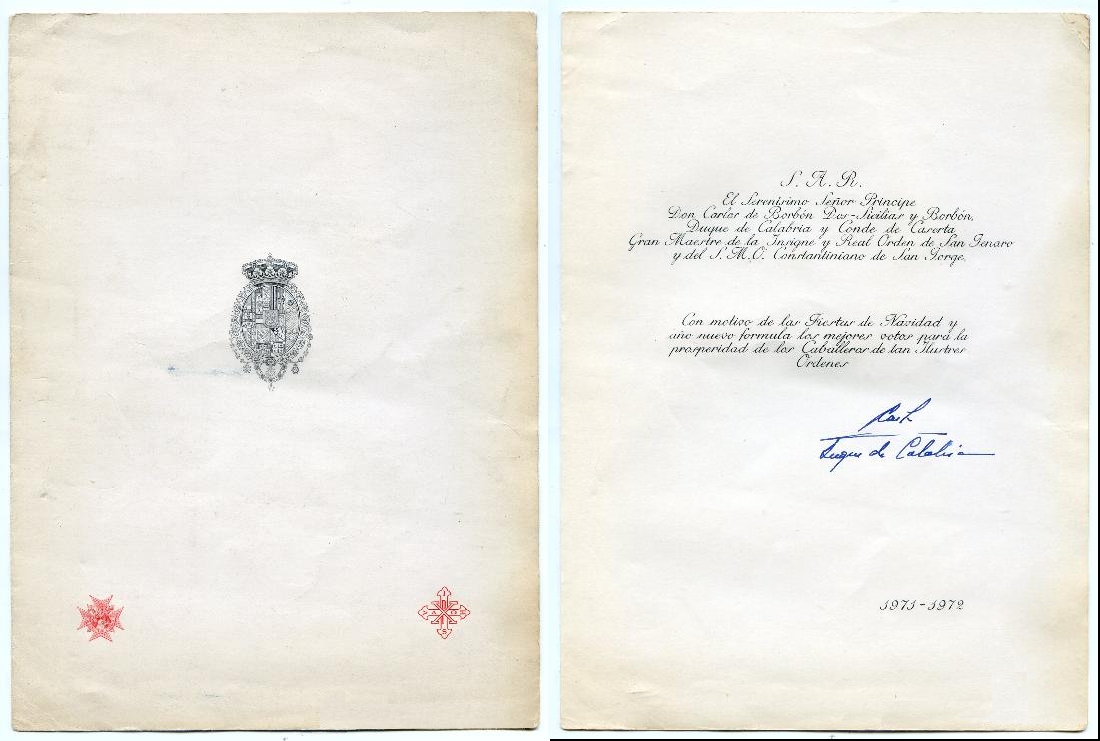 I
A Ω
H V
S
S. A. R.
El Serenísimo Señor Príncipe
Don Carlos de Borbón Dos-Sicilias y Borbón,
Duque de Calabria y Conde de Caserta
Gran Maestre de la Insigne y Real Orden de San Genaro
y del S. M. O. Constantiniano de San Jorge,
Con motivo de las Fiestas de Navidad y
año nuevo formula los mejores votos para la
prosperidad de los Caballeros de tan Ilustres
Ordenes
Carlos
Duque de Calabria
1971-1972